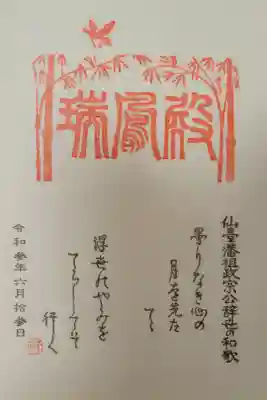 瑞鳳殿
仙臺藩祖政宗公辞世の和歌
曇りなき心の
月を先だ
てゝ
浮世のやみを
てらしてぞ
行く
令和参年六月拾参日